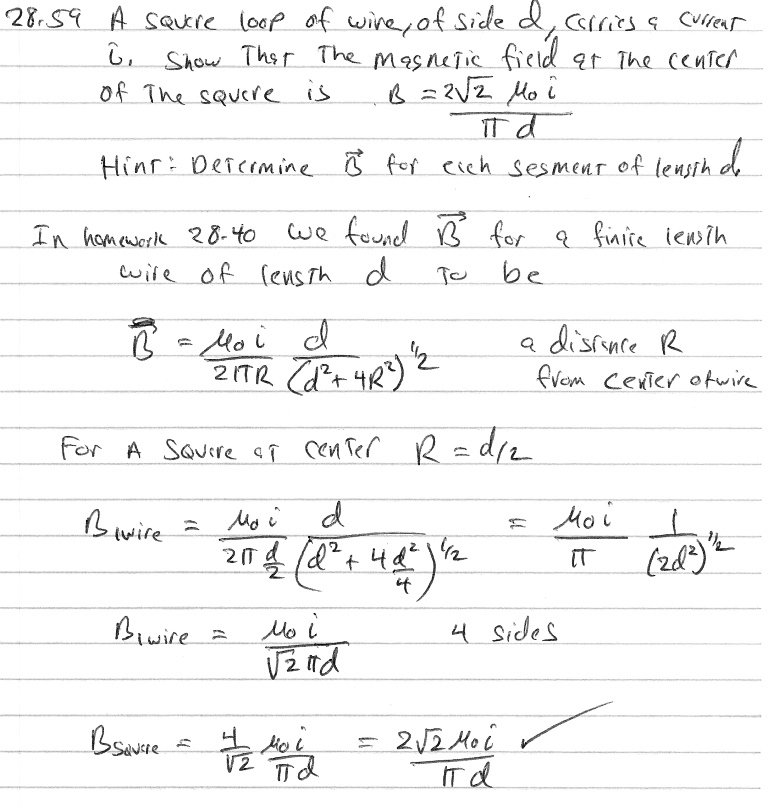 28.59 A square loop of wire, of side d, carries a current
i. Show That The magnetic field at The center
of The square is B = 2√2 μ₀ i / π d
Hint: Determine B⃗ for each segment of length d.
In homework 28-40 we found B⃗ for a finite length
wire of length d To be
B⃗ = μ₀ i / 2πR d / (d² + 4R²)^1/2 a distance R
from center of wire
For A Square at center R = d/2
B₁wire = μ₀ i / 2π d/2 d / (d² + 4 d²/4)^1/2 = μ₀ i / π 1 / (2d²)^1/2
B₁wire = μ₀ i / √2 πd 4 sides
Bsquare = 4/√2 μ₀ i / πd = 2√2 μ₀ i / πd ✓